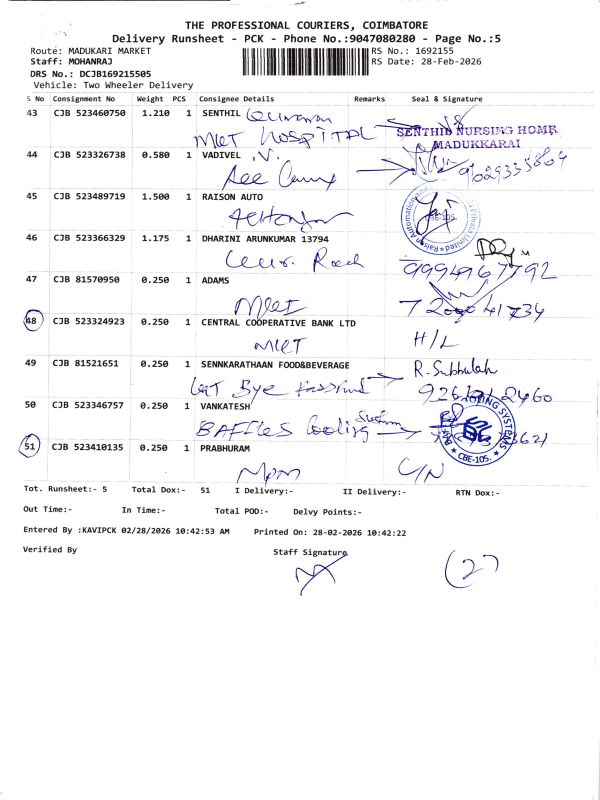 THE PROFESSIONAL COURIERS, COIMBATORE
Delivery Runsheet - PCK - Phone No.:9047080280 - Page No.:5
Route: MADUKARI MARKET RS No.: 1692155
Staff: MOHANRAJ RS Date: 28-Feb-2026
DRS No.: DCJB169215505
Vehicle: Two Wheeler Delivery
S No Consignment No Weight PCS Consignee Details Remarks Seal & Signature
43 CJB 523460750 1.210 1 SENTHIL
HOSPITAL SENTHIL NURSING HOME
MADUKKARAI
44 CJB 523326738 0.580 1 VADIVEL .V.
9629335864
45 CJB 523489719 1.500 1 RAISON AUTO
CBE-105.
46 CJB 523366329 1.175 1 DHARINI ARUNKUMAR 13794
9994967792
47 CJB 81570950 0.250 1 ADAMS
48 CJB 523324923 0.250 1 CENTRAL COOPERATIVE BANK LTD
H/L
49 CJB 81521651 0.250 1 SENNKARATHAAN FOOD&BEVERAGE
Bye
50 CJB 523346757 0.250 1 VANKATESH
BAFFLES Cooling System
CBE-105.
51 CJB 523410135 0.250 1 PRABHURAM
C/N
Tot. Runsheet:- 5 Total Dox:- 51 I Delivery:- II Delivery:- RTN Dox:-
Out Time:- In Time:- Total POD:- Delvy Points:-
Entered By :KAVIPCK 02/28/2026 10:42:53 AM Printed On: 28-02-2026 10:42:22
Verified By Staff Signature
(27